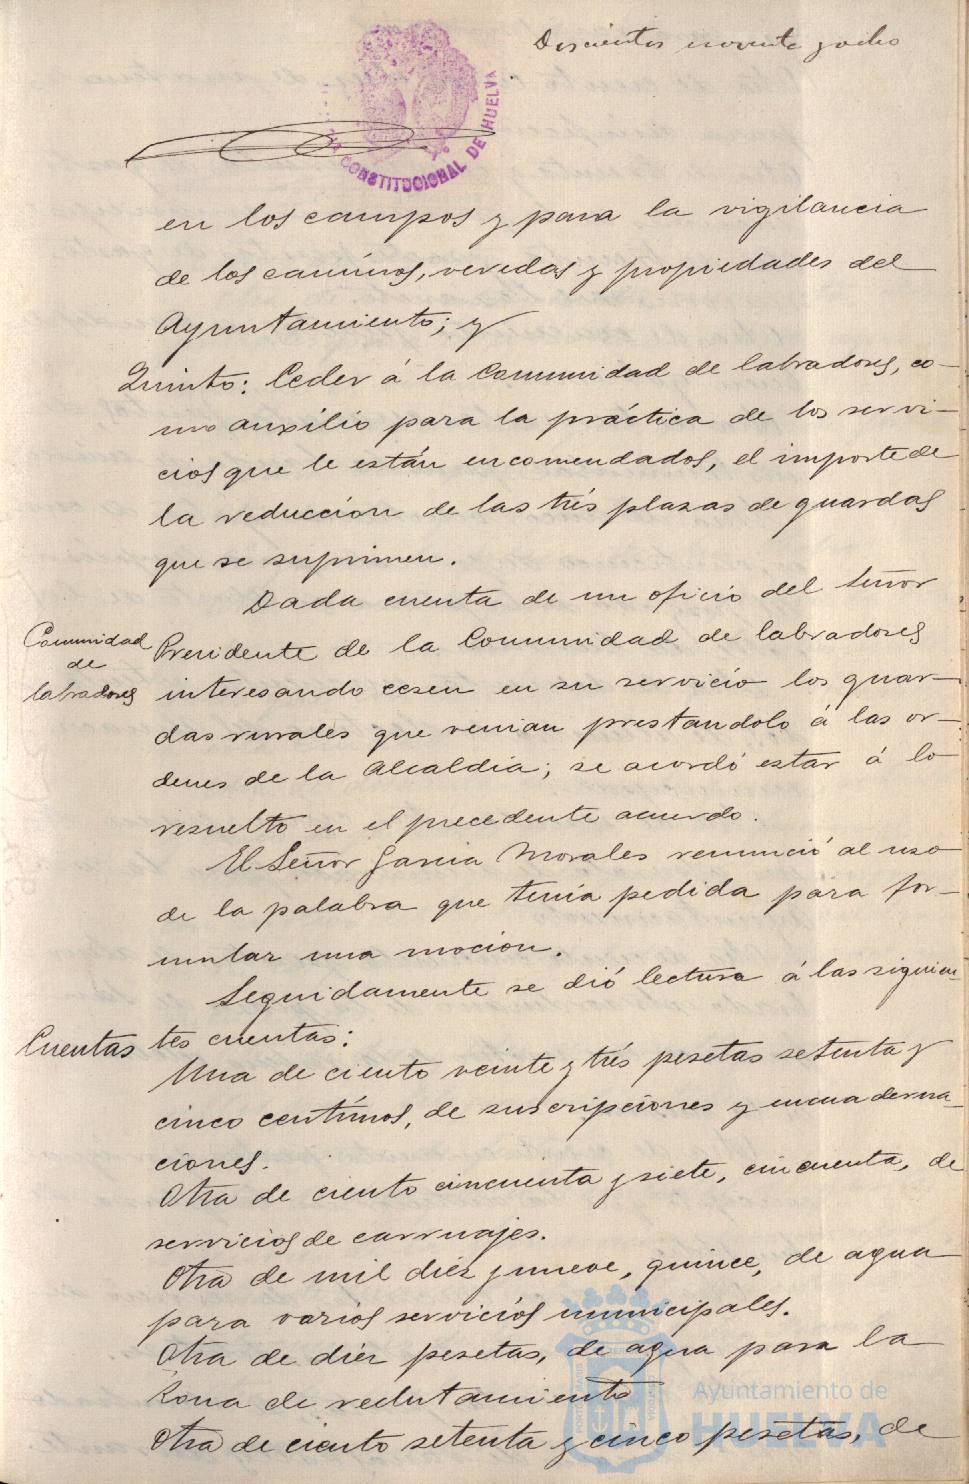 Doscientos noventa y ocho
CONSTITUCIONAL DE HUELVA
en los campos y para la vigilancia
de los caminos, veredas y propiedades del
Ayuntamiento; y
Quinto: Ceder á la Comunidad de labradores, co-
mo auxílio para la práctica de los servi-
cios que le están encomendados, el importe de
la reducción de las trés plazas de guardas
que se suprimen.
Dada cuenta de un oficio del Señor
Comunidad
de
labradores
Presidente de la Comunidad de labradores
interesando cesen en su servicio los guar-
das rurales que venian prestandolo á las or-
denes de la Alcaldía; se acordó estar á lo
resuelto en el precedente acuerdo.
El Señor Garcia Morales renunció al uso
de la palabra que tenía pedida para for-
mular una moción.
Seguidamente se dió lectura á las siguien-
Cuentas
tes cuentas:
Una de ciento veinte y trés pesetas setenta y
cinco centímos, de suscripciones y encuaderna-
ciones.
Otra de ciento cincuenta y siete, cincuenta, de
servicios de carruajes.
Otra de mil diéz y nueve, quince, de agua
para varios servicios municipales.
Otra de diéz pesetas, de agua para la
Zona de reclutamiento
Otra de ciento setenta y cinco pesetas, de
Ayuntamiento de
HUELVA